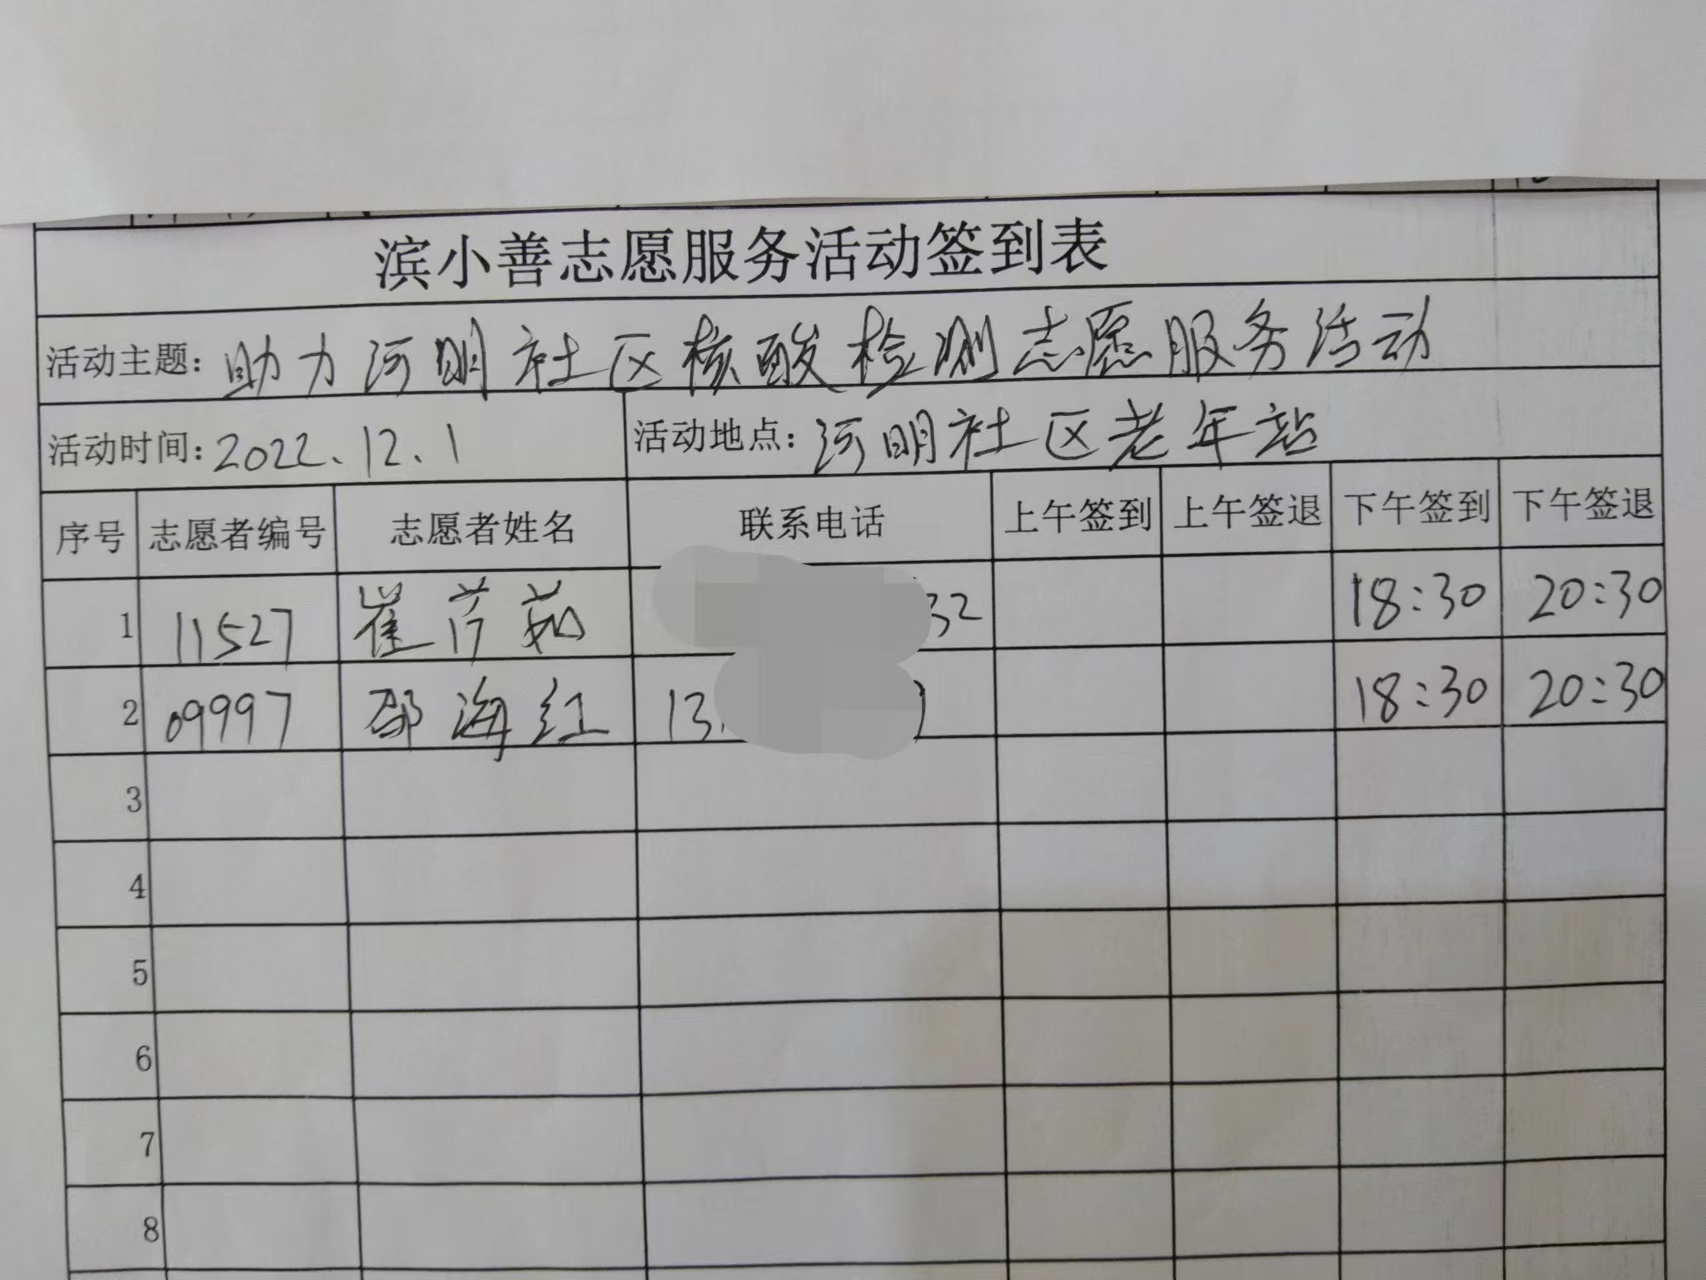 滨小善志愿服务活动签到表
活动主题：助力河明社区核酸检测志愿服务活动
活动时间：2022.12.1 活动地点：河明社区老年站
序号 志愿者编号 志愿者姓名 联系电话 上午签到 上午签退 下午签到 下午签退
1 11527 崔 茹 32 18:30 20:30
2 09997 邵海红 13 18:30 20:30
3
4
5
6
7
8